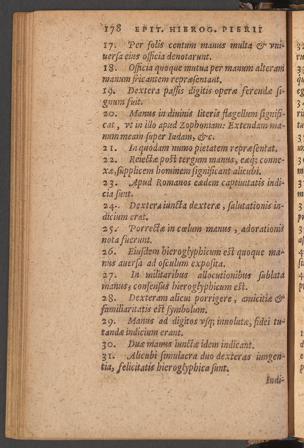 178 EPIT. HIEROG. PIERII
17. Per solis centum manus multa & vni-
uersa eius officia denotarunt.
18. Officia quoque mutua per manum alteram
manum fricantem repræsentant.
19. Dextera passis digitis operæ ferendæ si-
gnum fuit.
20. Manus in diuinis literis flagellum signifi-
cat, vt in illo apud Zophoniam: Extendam ma-
num meam super Iudam, &c.
21. In quodam numo pietatem repræsentat.
22. Reiectæ post tergum manus, eæq; conne-
xæ, supplicem hominem significant alicubi.
23. Apud Romanos eædem captiuitatis indi-
cia sunt.
24. Dextera iuncta dexteræ, salutationis in-
dicium erat.
25. Porrectæ in cœlum manus, adorationis
nota fuerunt.
26. Eiusdem hieroglyphicum est quoque ma-
nus auersa ad osculum exposita.
27. In militaribus allocutionibus sublata
manus, consensus hieroglyphicum est.
28. Dexteram alicui porrigere, amicitiæ &
familiaritatis est symbolum.
29. Manus ad digitos vsq; inuolutæ, fidei tu-
tandæ indicium erant.
30. Duæ manus iunctæ idem indicant.
31. Alicubi simulacra duo dexteras iungen-
tia, felicitatis hieroglyphica sunt.
Indi-